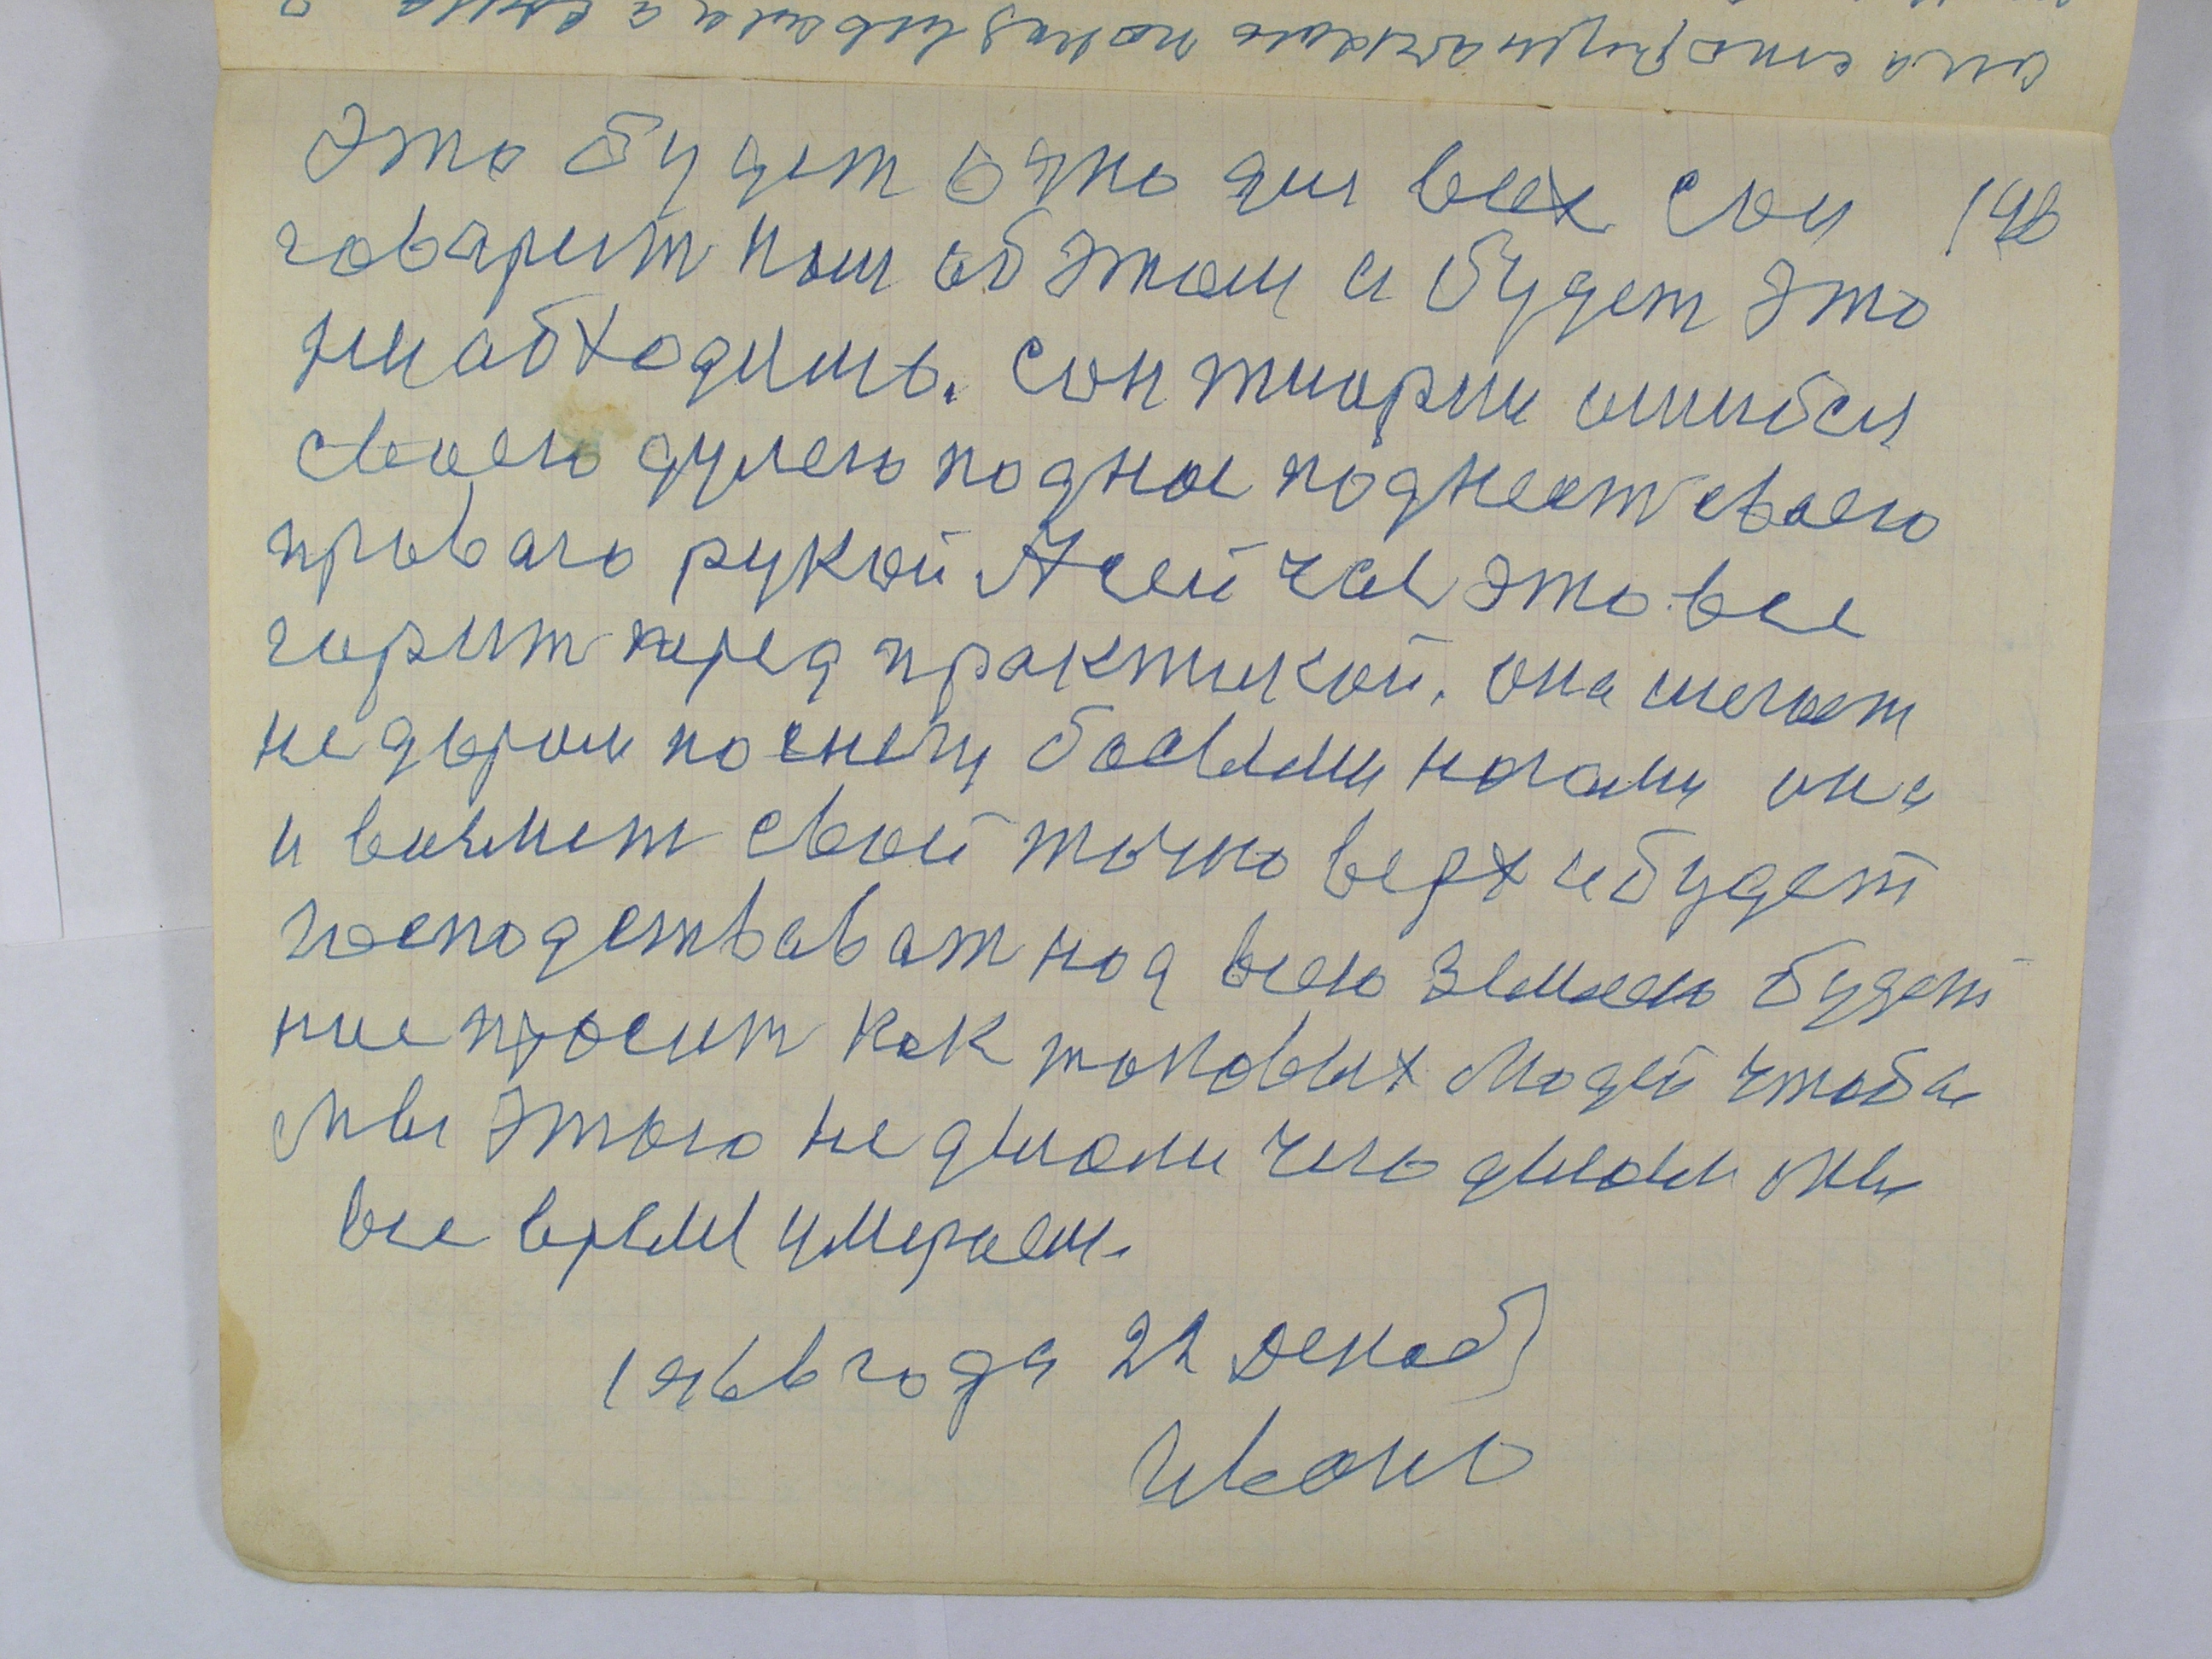 Это будет одно для всех сон 148
говорит нам об этом и будет это
ниабходимь. Сон тиории ошибся
своею думаю поднос поднест своею
праваго рукой А сейчас это все
горит перед практикой. она шегает
не даром по снегу босыми ногами она
и возмет свой точно верх и будет
господствават над всею землею будет
нас просит как таковых людей чтобы
мы этого не делали чего делаем мы
все время умираем.
1966 года 22 Декаб
Иванов